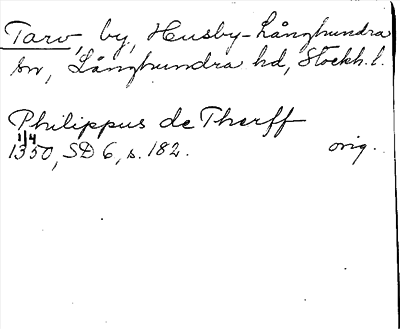 Tarv, by, Husby-Långhundra
sn, Långhundra hd, Stockh. l.
Philippus de Therff
1/4
1350, SD 6, s. 182. orig.